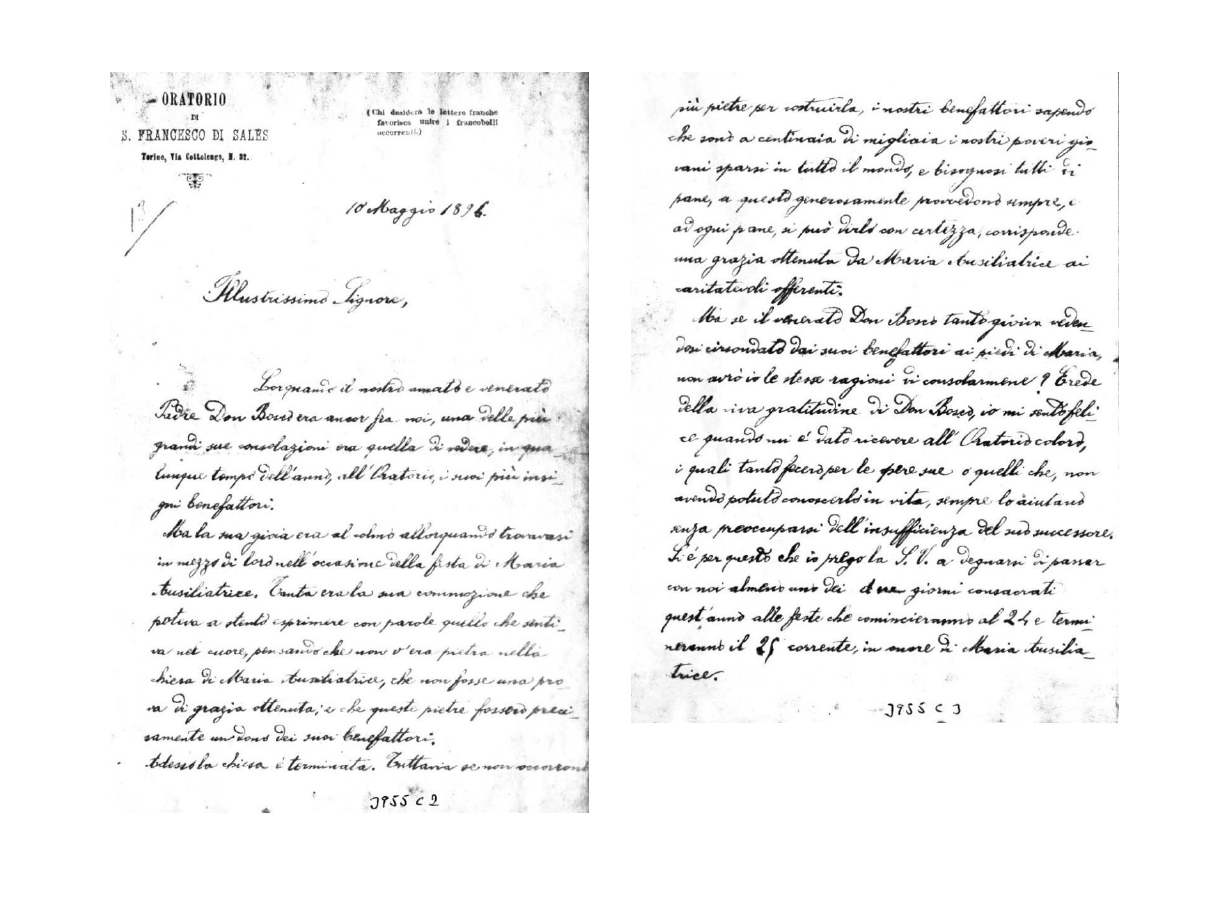 ORATORIO
DI
S. FRANCESCO DI SALES
Torino, Via Cottolengo, N. 32.
(Chi desidera le lettere franche
favorisca unire i francobolli
occorrenti.)
13
10 Maggio 1896.
Illustrissimo Signore,
Lorquando il nostro amato e venerato
Padre Don Bosco era ancor fra noi, una delle più
grandi sue consolazioni era quella di vedere, in qua
lunque tempo dell'anno, all'Oratorio, i suoi più insi-
gni benefattori.
Ma la sua gioia era al colmo allorquando trovavasi
in mezzo di loro nell'occasione della festa di Maria
Ausiliatrice. Tanta era la sua commozione che
poteva a stento esprimere con parole quello che senti-
va nel cuore, pensando che non v'era pietra nella
chiesa di Maria Ausiliatrice, che non fosse una pro
va di grazia ottenuta; e che queste pietre fossero preci-
samente un dono dei suoi benefattori.
Adesso la chiesa è terminata. Tuttavia se non occorrono
3955 C 2
più pietre per costruirla, i nostri benefattori sapendo
che sono a centinaia di migliaia i nostri poveri gio-
vani sparsi in tutto il mondo, e bisognosi tutti di
pane, a questo generosamente provvedono sempre, e
ad ogni pane, si può dirlo con certezza, corrisponde
una grazia ottenuta da Maria Ausiliatrice ai
caritatevoli offerenti.
Ma se il venerato Don Bosco tanto gioiva veden-
dosi circondato dai suoi benefattori ai piedi di Maria,
non avrò io le stesse ragioni di consolarmene? Erede
della viva gratitudine di Don Bosco, io mi sento feli-
ce quando mi è dato ricevere all'Oratorio coloro,
i quali tanto fecero per le opere sue o quelli che, non
avendo potuto conoscerlo in vita, sempre lo aiutano
senza preoccuparsi dell'insufficienza del suo successore.
Si è per questo che io prego la S. V. a degnarsi di passar
con noi almeno uno dei due giorni consacrati
quest'anno alle feste che comincieranno al 24 e termi
neranno il 25 corrente, in onore di Maria Ausilia-
trice.
3955 C 3